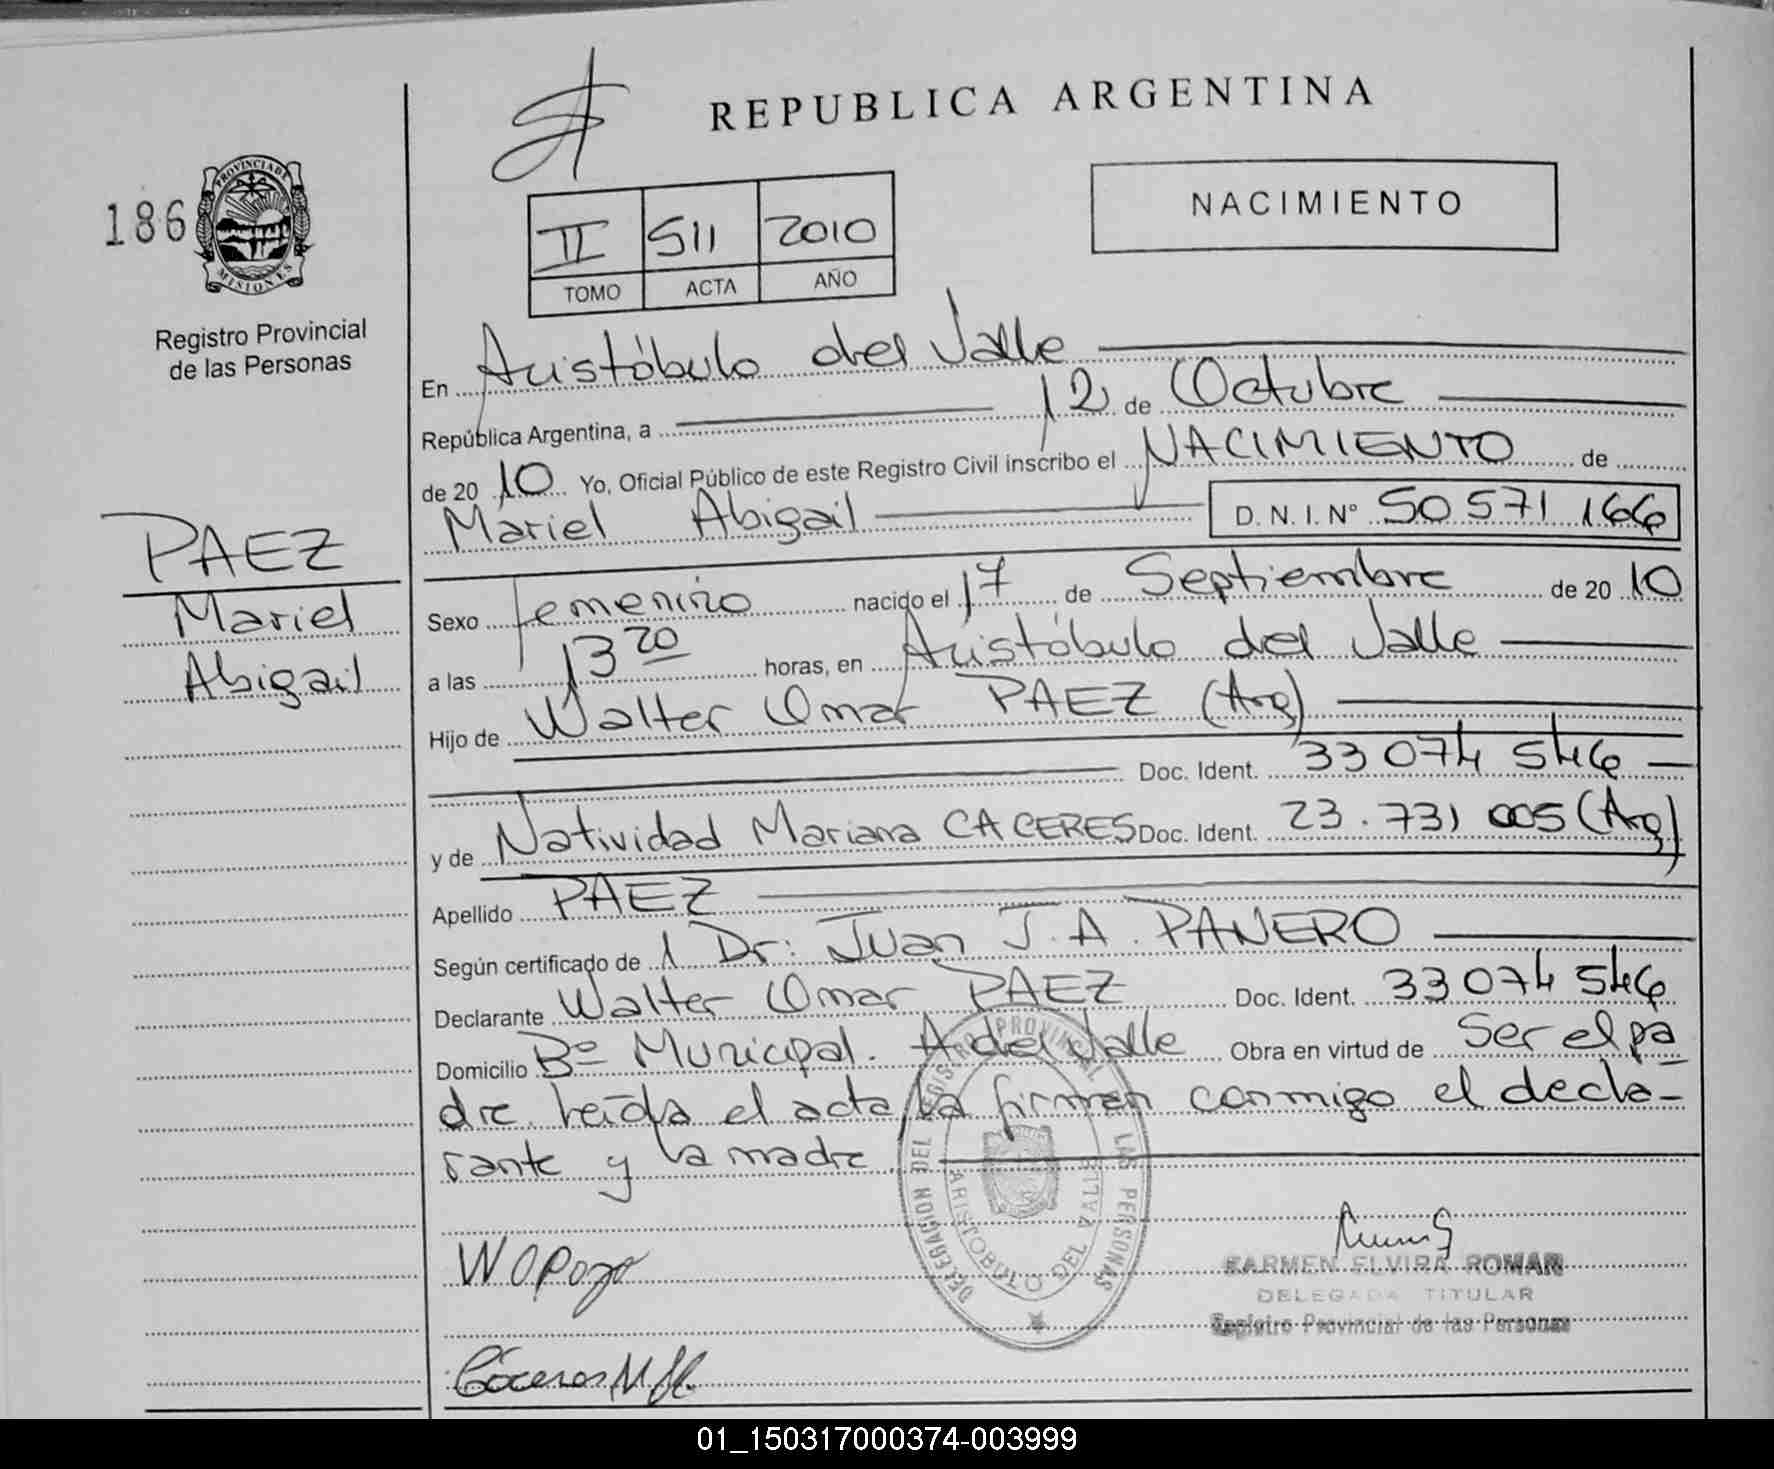 REPUBLICA ARGENTINA
186
PROVINCIA DE
MISIONES
Registro Provincial
de las Personas
II 511 2010
TOMO ACTA AÑO
NACIMIENTO
En Aristóbulo del Valle
República Argentina, a 12 de Octubre
de 20 10 Yo, Oficial Público de este Registro Civil inscribo el NACIMIENTO de
Mariel Abigail D.N.I. Nº 50 571 166
PAEZ
Mariel
Abigail
Sexo femenino nacido el 17 de Septiembre de 20 10
a las 13 20 horas, en Aristóbulo del Valle
Hijo de Walter Omar PAEZ (Arg)
Doc. Ident. 33 074 546
y de Natividad Mariana CACERES Doc. Ident. 23.731 005 (Arg)
Apellido PAEZ
Según certificado de l Dr: Juan J. A. PANERO
Declarante Walter Omar PAEZ Doc. Ident. 33 074 546
Domicilio Bº Municipal. A del Valle Obra en virtud de Ser el pa
dre. leída el acta la firman conmigo el decla-
rante y la madre
DELEGACION DEL REGISTRO PROVINCIAL DE LAS PERSONAS
ARISTOBULO DEL VALLE
W O Paez
CARMEN ELVIRA ROMAN
DELEGADA TITULAR
Registro Provincial de las Personas
Cáceres N M.
01_150317000374-003999